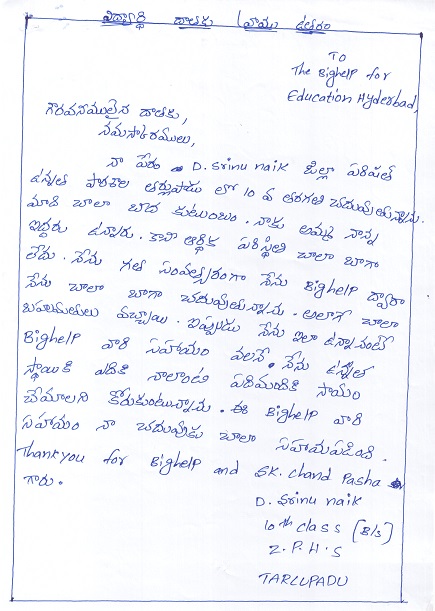 విద్యార్థి దాతకు వ్రాయు ఉత్తరం
TO
The Bighelp for
Education Hyderbad,
గౌరవనీయులైన దాతకు,
నమస్కారములు,
నా పేరు D. Srinu naik జిల్లా పరిషత్
ఉన్నత పాఠశాల తర్లుపాడు లో 10 వ తరగతి చదువుతున్నాను.
మాది చాలా బీద కుటుంబం. నాకు అమ్మ నాన్న
ఇద్దరు ఉన్నారు. కాని ఆర్థిక పరిస్థితి చాలా బాగా
లేదు. నేను గత సంవత్సరంగా నేను Bighelp ద్వారా
నేను చాలా బాగా చదువుతున్నాను. అలాగే చాలా
బహుమతులు వచ్చాయి. ఇప్పుడు నేను ఇలా ఉన్నానంటే
Bighelp వారి సహాయం వలనే. నేను ఉన్నత
స్థాయికి ఎదిగి నాలాంటి పదిమందికి సాయం
చేయాలని కోరుకుంటున్నాను. ఈ Bighelp వారి
సహాయం నా చదువుకు చాలా సహాయపడింది.
Thankyou for Bighelp and SK. Chand Pasha
గారు.
D. Srinu naik
10th class (B/S)
Z.P.H.S
TARLUPADU